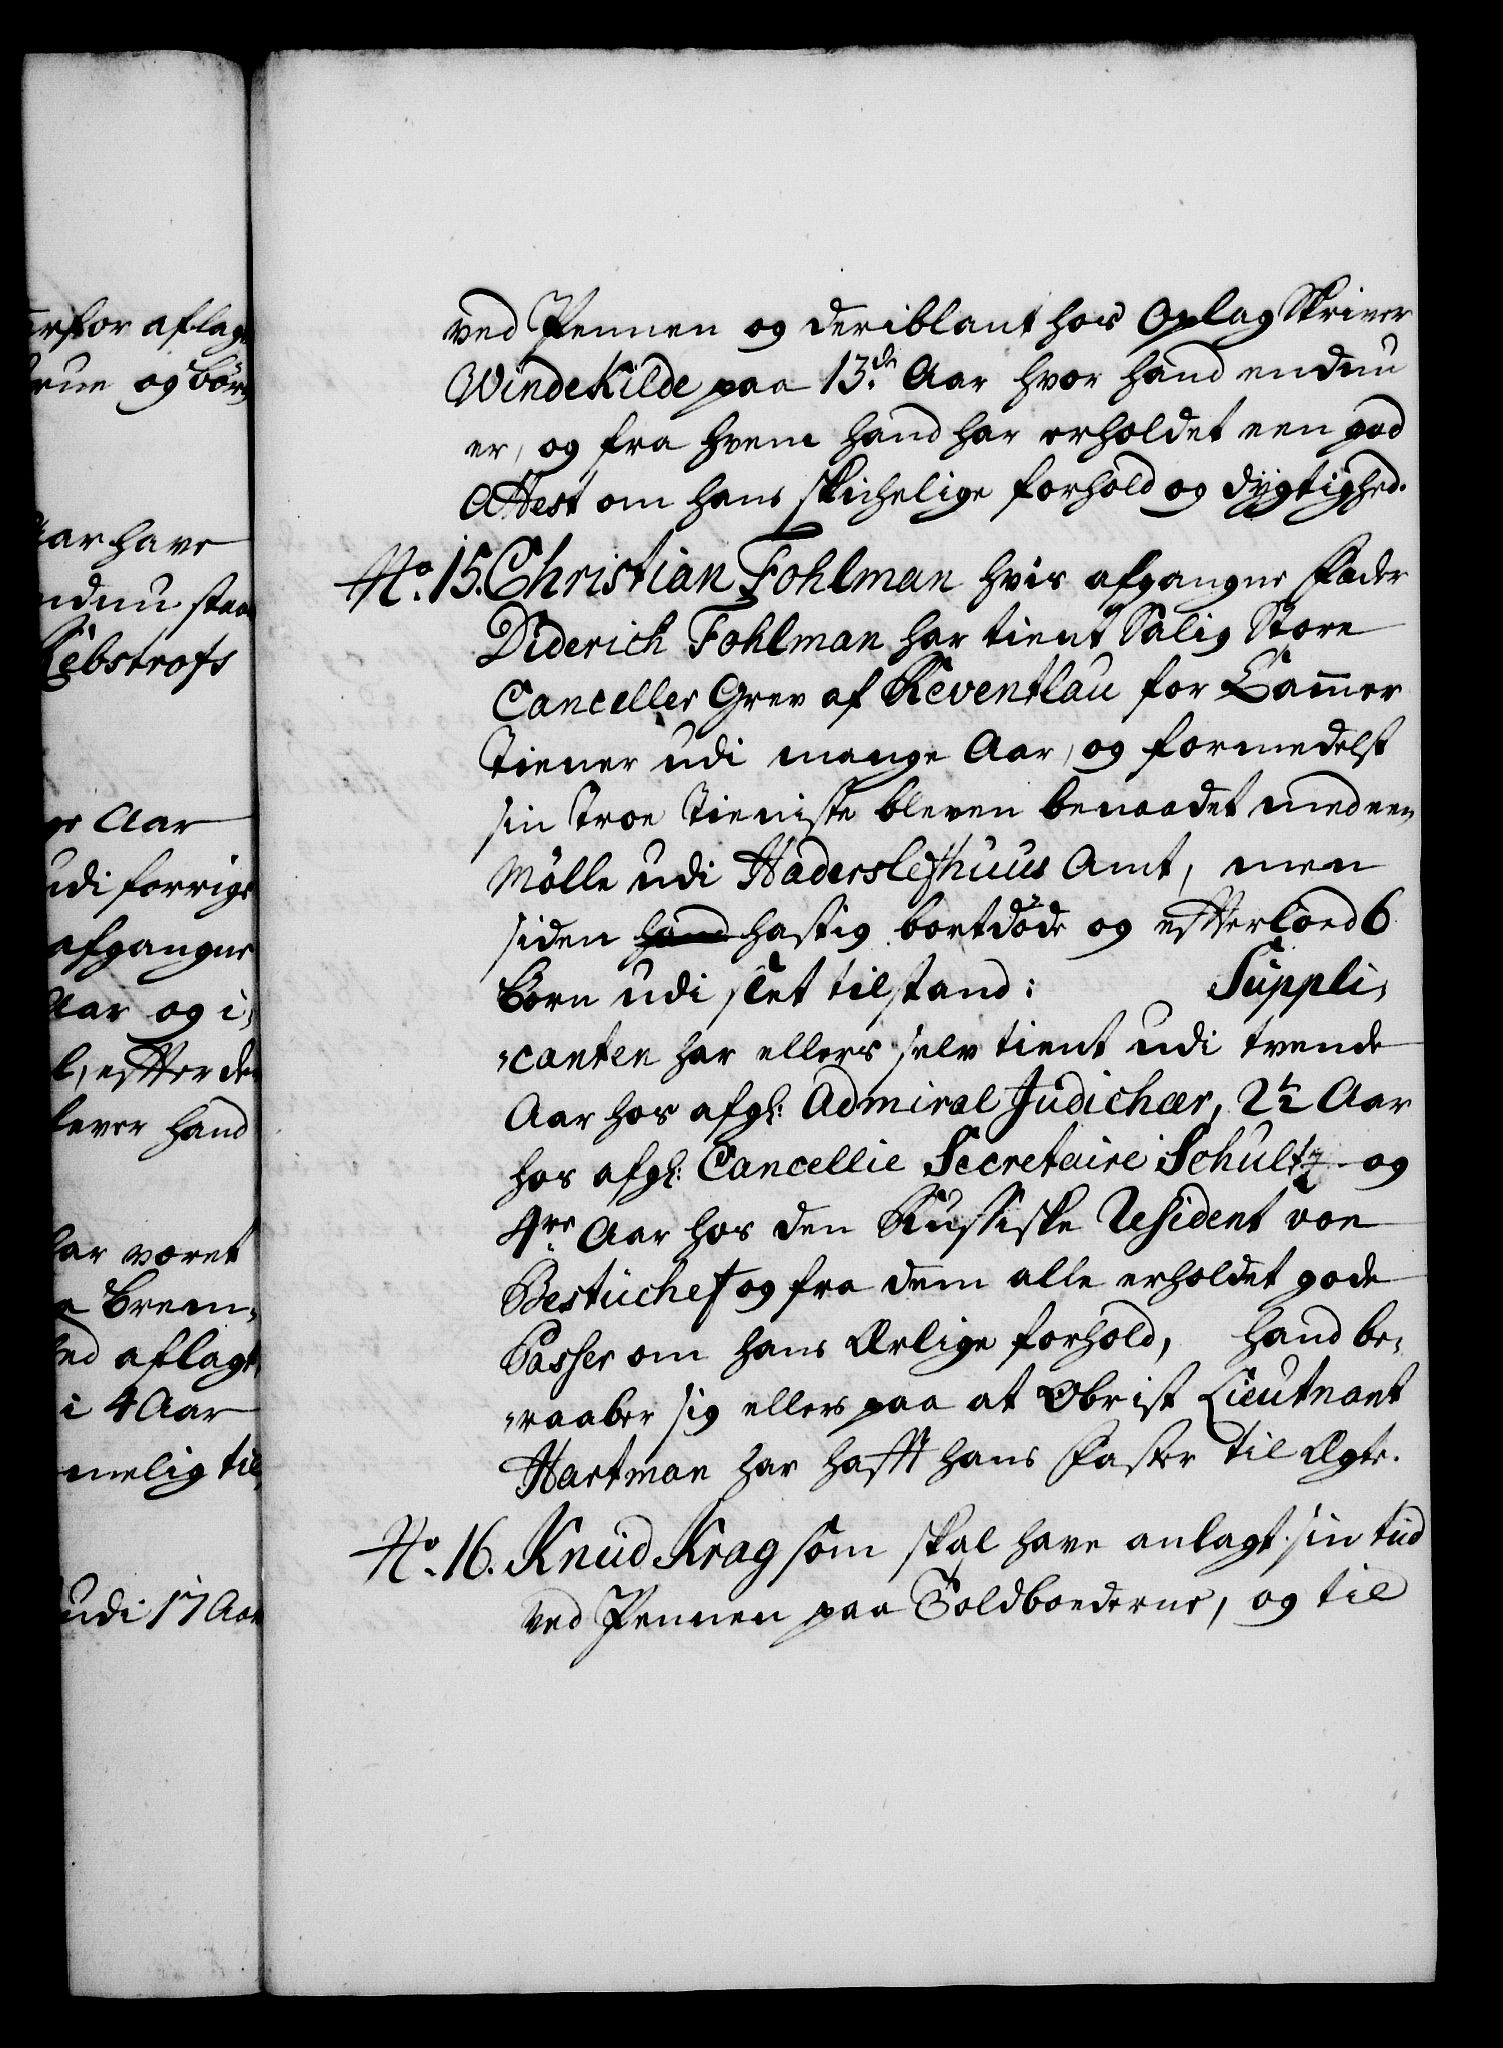 erfor aflagt
frue og börn
Aar have
endnu staae
Rebstrofs
ge Aar
udi forrige
afgangne
Aar og i,
l, effter de
lever hand
har været
e Brem,
ed aflagt,
i 4 Aar
nelig til,
udi 17 Aar
ved Pennen og deriblant hos Oplag Skriver
Windekilde paa 13.de Aar hvor hand endnu
er, og fra hvem hand har erholdet een god
Attest om hans skichelige forhold og dÿgtighed.
No. 15. Christian Fohlman hvis afgangne Fader
Diderich Fohlman har tient Salig Store
Canceller Grev af Reventlau for Cammer
Tiener udi mange Aar, og formedelst
sin Troe Tieniste bleven benaadet med een
Mölle udi Haderslefhuus Amt, men
siden hand hastig bortdöde og effterloed 6
Börn udi slet tilstand: Suppli,
,canten har ellers selv tient udi tvende
Aar hos afg: Admiral Judichær, 2½ Aar
hos afg: Cancellie Secretaire Schultz og
4re Aar hos den Russiske Resident von
Bestuchef og fra dem alle erholdet gode
Passer om hans Ærlige forhold, hand be,
,raaber sig ellers paa at Obrist Lieutnant
Hartman har hafft hans Faster til Ægte.
No. 16. Knud Krag som skal have anlagt sin tiid
ved Pennen paa Toldboederne, og til